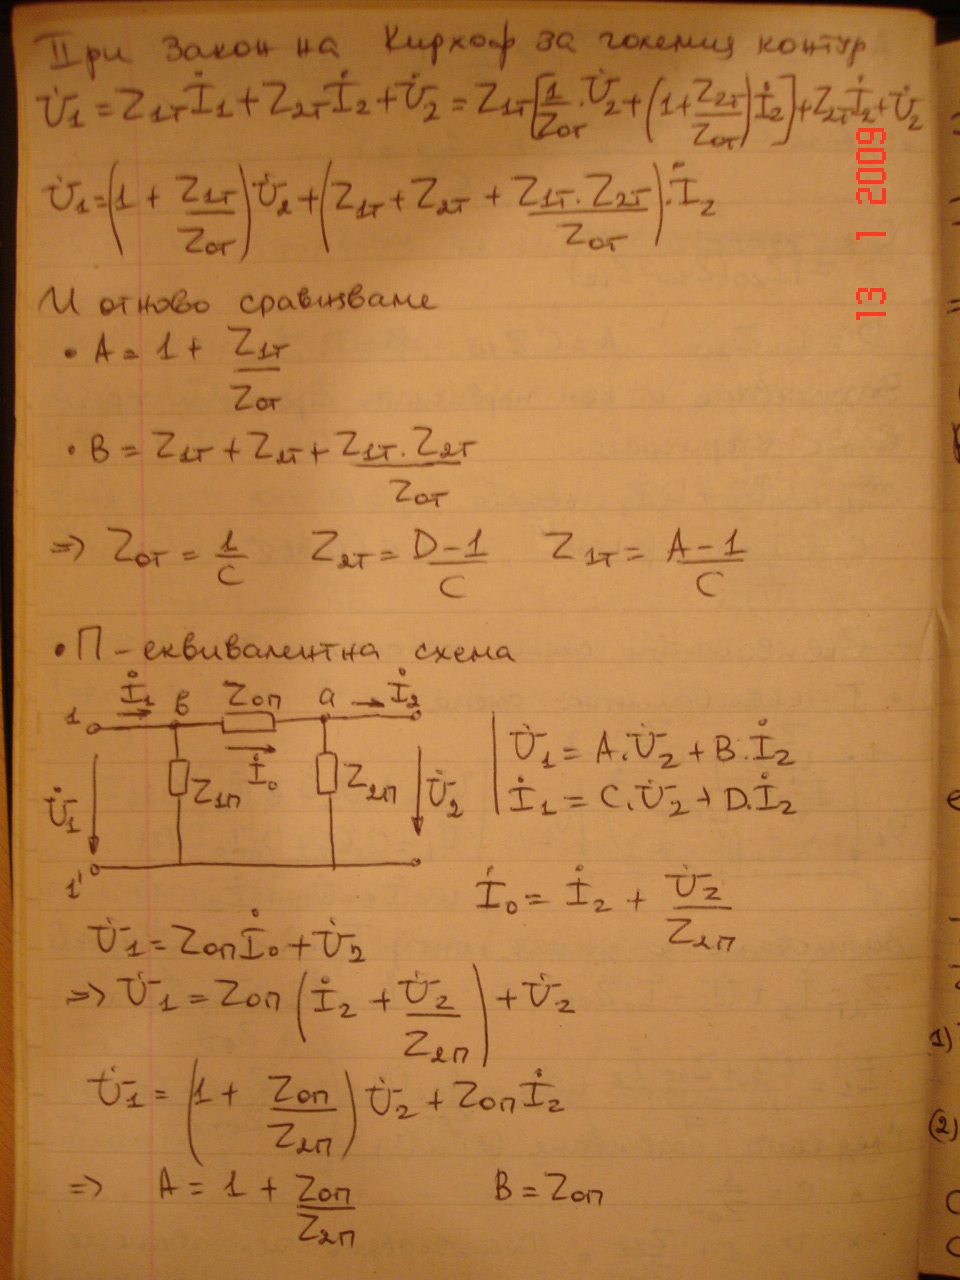 IIри Закон на Кирхоф за големия контур
U̇1 = Z1T İ1 + Z2T İ2 + U̇2 = Z1T [1/Z0T . U̇2 + (1 + Z2T/Z0T) İ2] + Z2T İ2 + U̇2
U̇1 = (1 + Z1T/Z0T) U̇2 + (Z1T + Z2T + Z1T . Z2T/Z0T) . İ2
13 1 2009
И отново сравняваме
• A = 1 + Z1T/Z0T
• B = Z1T + Z2T + Z1T . Z2T/Z0T
=> Z0T = 1/C Z2T = D-1/C Z1T = A-1/C
• П - еквивалентна схема
İ1 в Z0П а İ2
1
İ0
U̇1 Z1П Z2П U̇2
1'
U̇1 = A.U̇2 + B.İ2
İ1 = C.U̇2 + D.İ2
İ0 = İ2 + U̇2/Z2П
U̇1 = Z0П İ0 + U̇2
=> U̇1 = Z0П (İ2 + U̇2/Z2П) + U̇2
U̇1 = (1 + Z0П/Z2П) U̇2 + Z0П İ2
=> A = 1 + Z0П/Z2П B = Z0П
1)
(2)